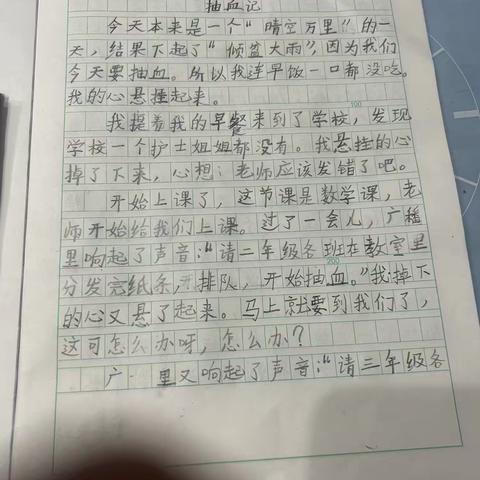 抽血记
今天本来是一个“晴空万里”的一
天，结果下起了“倾盆大雨”，因为我们
今天要抽血。所以我连早饭一口都没吃。
我的心悬挂起来。
100
我提着我的早餐来到了学校，发现
学校一个护士姐姐都没有。我悬挂的心
掉了下来，心想：老师应该发错了吧。
开始上课了，这节课是数学课，老
师开始给我们上课。过了一会儿，广播
里响起了声音：“请二年级各班在教室里
200
分发完纸条，排队，开始抽血。”我掉下
的心又悬了起来。马上就要到我们了，
这可怎么办呀，怎么办？
广 里又响起了声音：“请三年级各